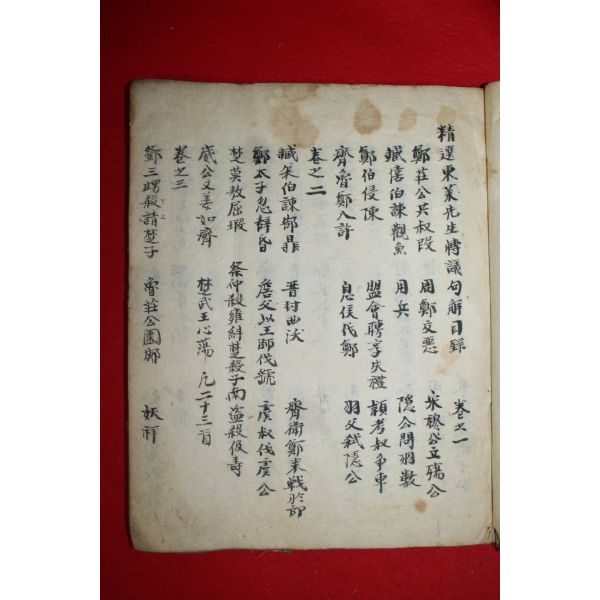 精選東萊先生博議句解目錄 卷之一
鄭莊公共叔段 周鄭交惡 宋穆公立殤公
臧僖伯諫觀魚 用兵 隱公問羽數
鄭伯侵陳 盟會聘享失禮 潁考叔爭車
齊魯鄭入許 息侯伐鄭 羽父弒隱公
卷之二
臧哀伯諫郜鼎 晋封曲沃 齊衛鄭來戰於郎
鄭太子忽辞昏 詹父以王師伐虢 虞叔伐虞公
楚莫敖屈瑕 祭仲殺雍糾楚殺子南盗殺伋壽
威公文姜如齊 楚武王心蕩 凡二十三首
卷之三
鄧三甥殺請楚子 魯莊公圍郕 妖祥